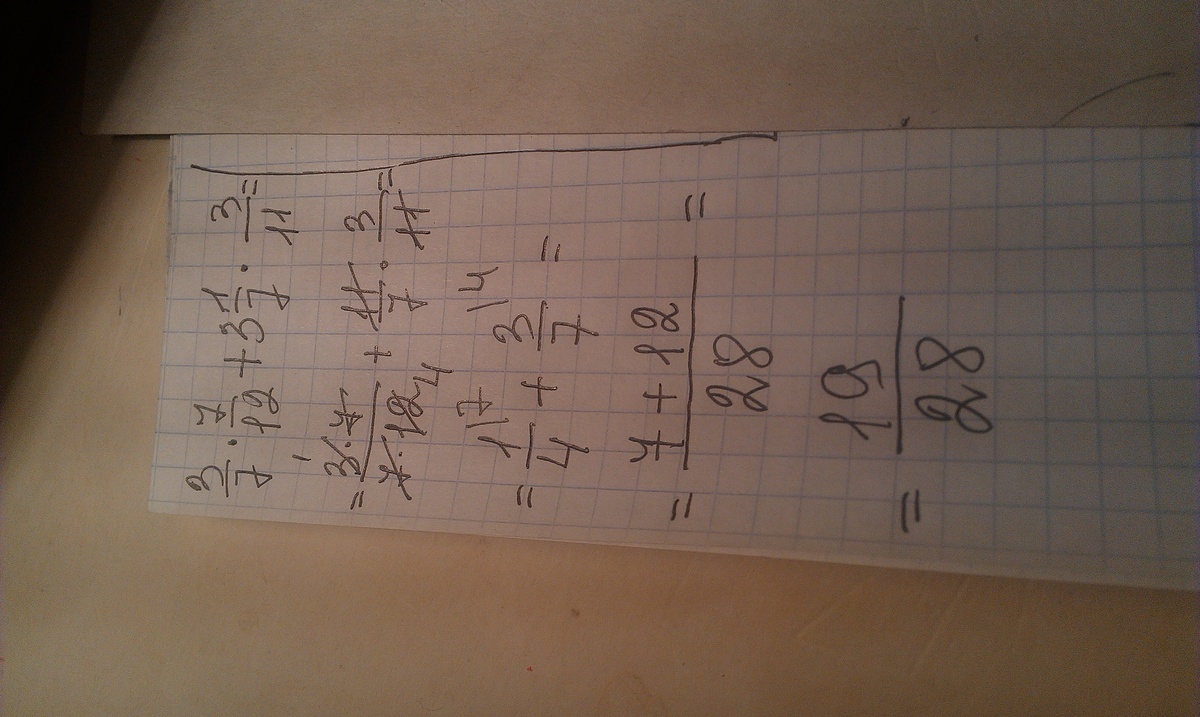 3/7 · 7/12 + 3 1/7 · 3/11 =
= 3·7 / 7·12 + 11/7 · 3/11 =
= 1/4 + 3/7 =
= 7 + 12 / 28 =
= 19/28